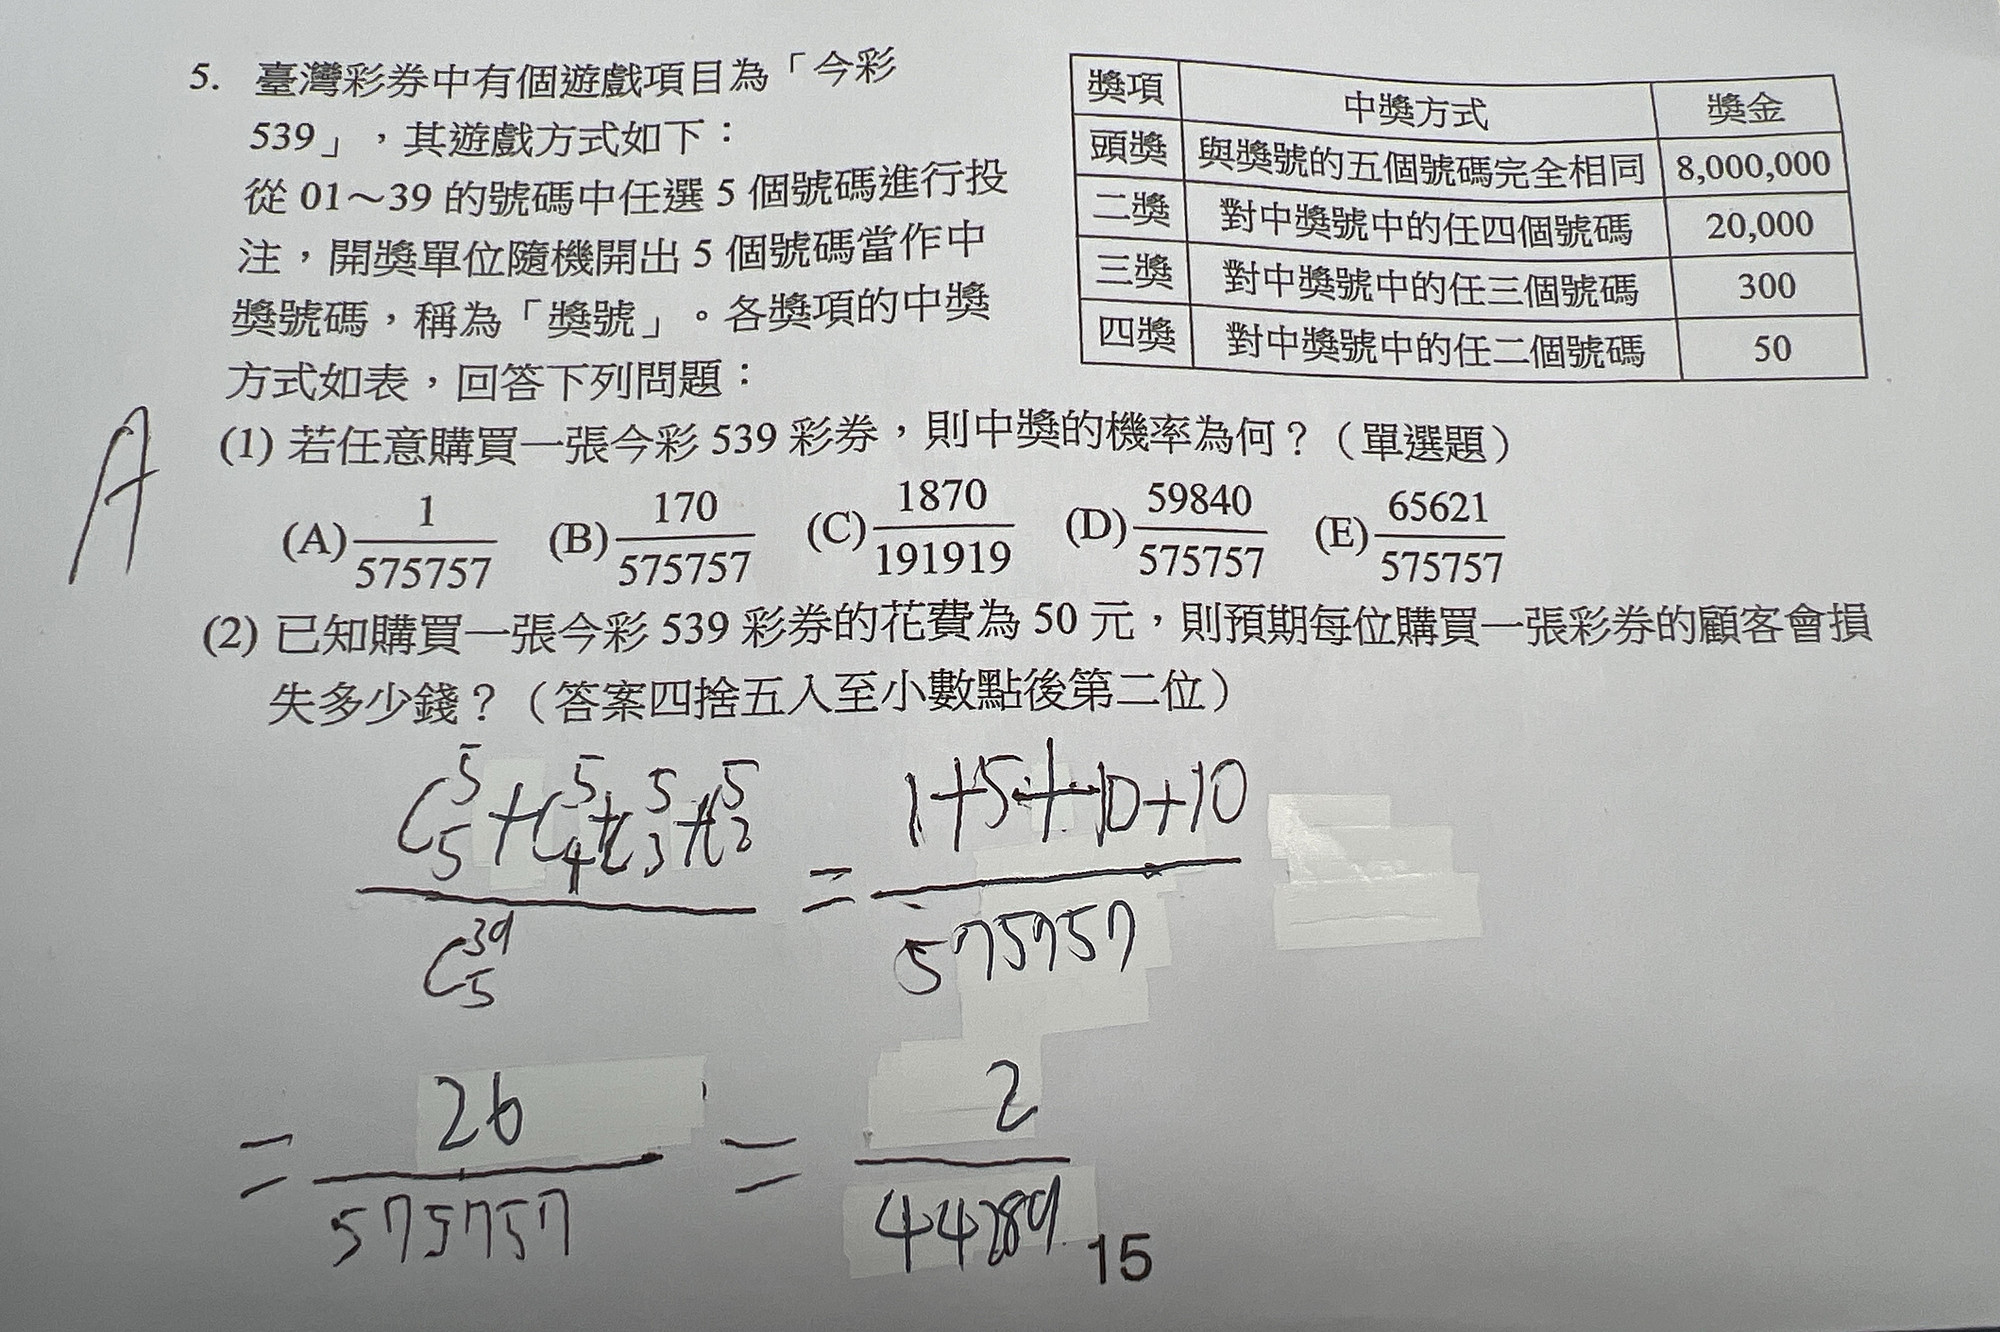 5. 臺灣彩券中有個遊戲項目為「今彩
539」，其遊戲方式如下：
從 01～39 的號碼中任選 5 個號碼進行投
注，開獎單位隨機開出 5 個號碼當作中
獎號碼，稱為「獎號」。各獎項的中獎
方式如表，回答下列問題：
獎項 中獎方式 獎金
頭獎 與獎號的五個號碼完全相同 8,000,000
二獎 對中獎號中的任四個號碼 20,000
三獎 對中獎號中的任三個號碼 300
四獎 對中獎號中的任二個號碼 50
A
(1) 若任意購買一張今彩 539 彩券，則中獎的機率為何？（單選題）
(A) 1/575757 (B) 170/575757 (C) 1870/191919 (D) 59840/575757 (E) 65621/575757
(2) 已知購買一張今彩 539 彩券的花費為 50 元，則預期每位購買一張彩券的顧客會損
失多少錢？（答案四捨五入至小數點後第二位）
C^5_5+C^5_4+C^5_3+C^5_2 / C^39_5 = 1+5+10+10 / 575757
= 26/575757 = 2/44289
15